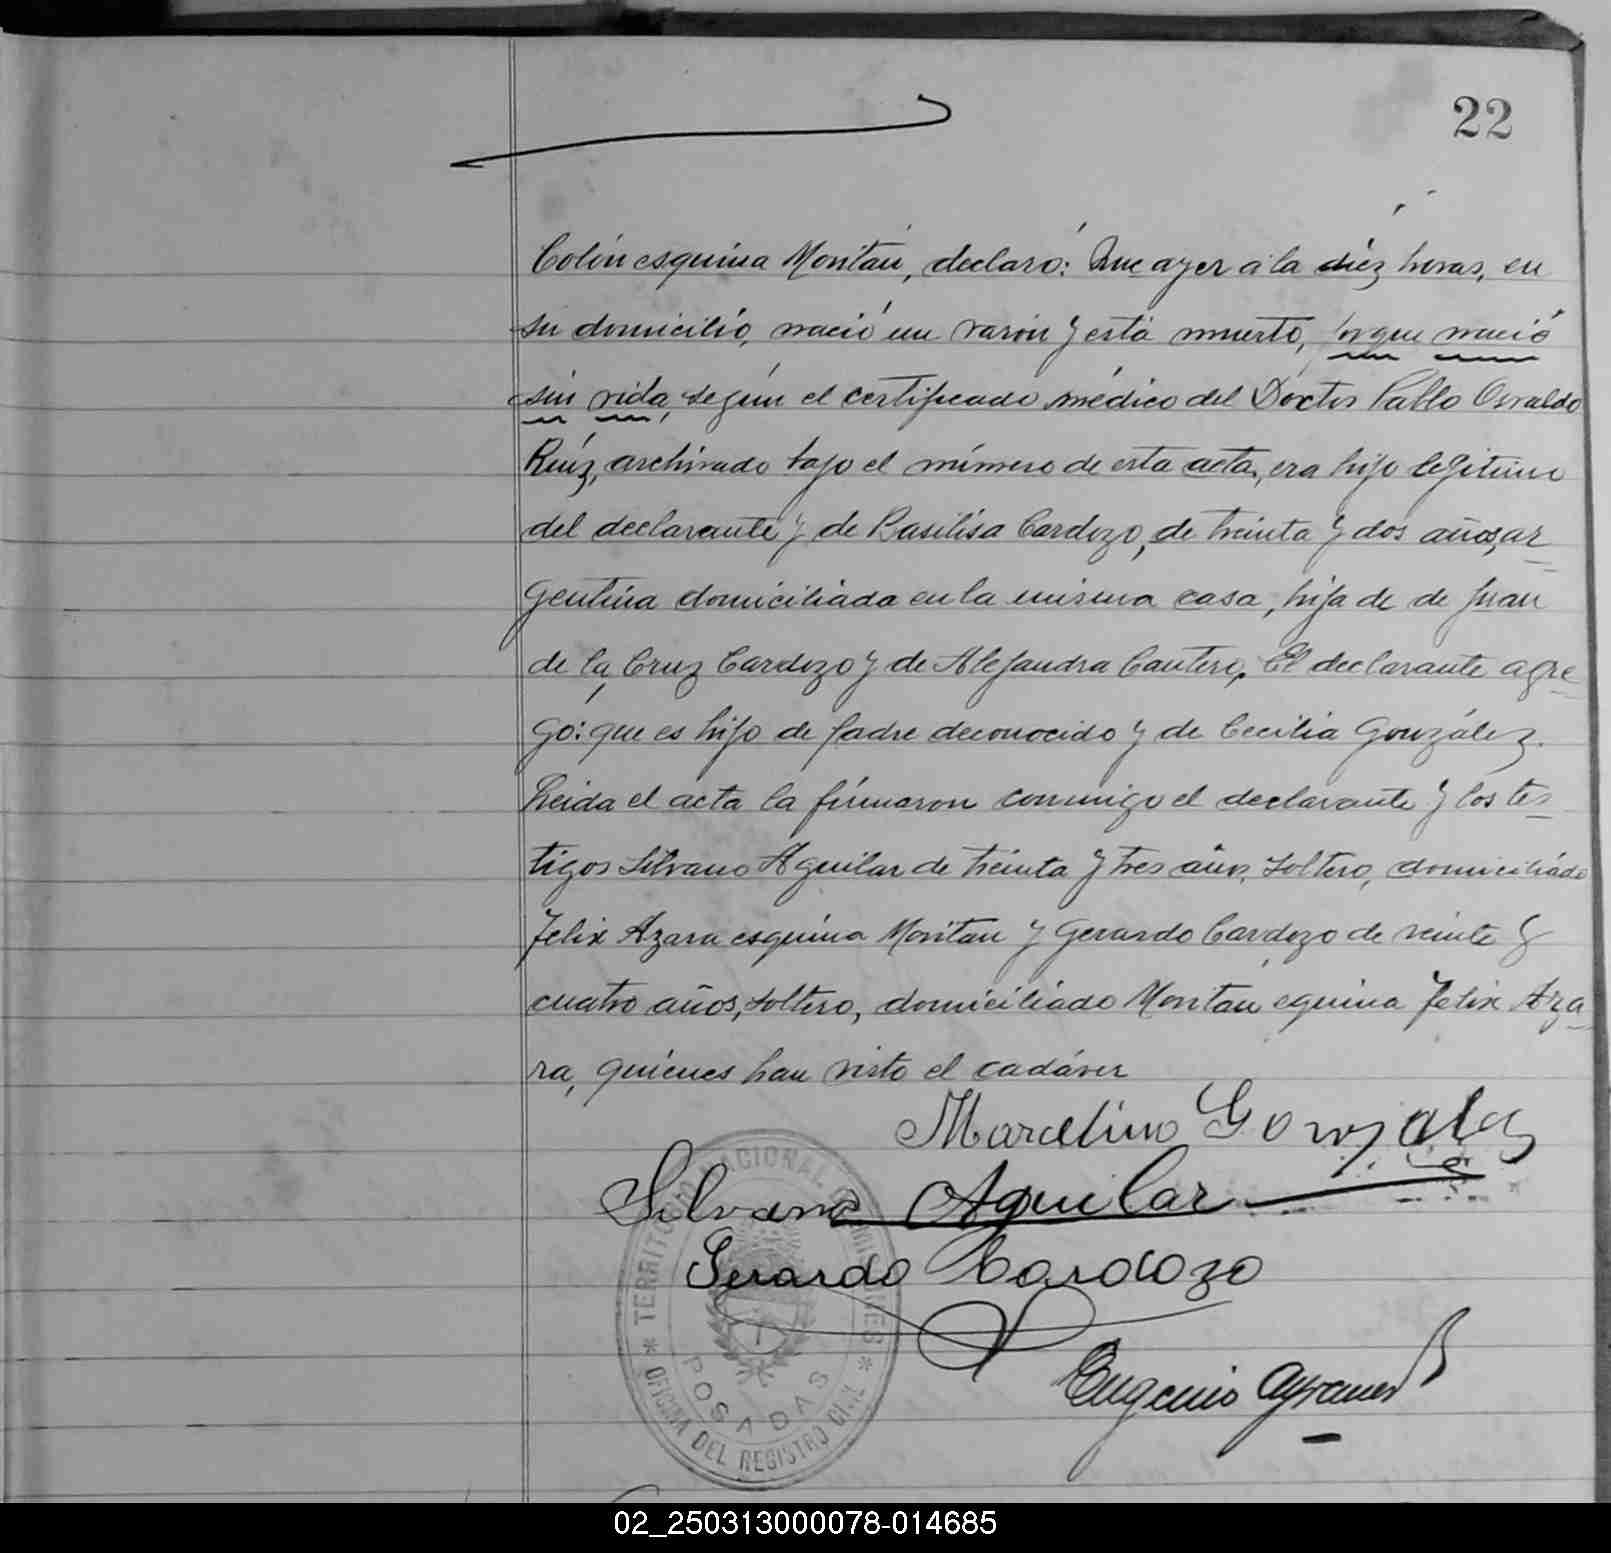 22
Colón esquina Montau, declaró: Que ayer a la diéz horas, en
su domicilio, nació un varón y está muerto, porque nació
sin vida, según el certificado médico del Doctor Pablo Osvaldo
Ruíz, archivado bajo el número de esta acta, era hijo legítimo
del declarante y de Basilisa Cardozo, de treinta y dos años, ar
gentina domiciliada en la misma casa, hija de de Juan
de la Cruz Cardozo y de Alejandra Cantero. El declarante agre
gó: que es hijo de padre deconocido y de Cecilia González.
Leida el acta la firmaron conmigo el declarante y los tes
tigos Silvano Aguilar de treinta y tres años, soltero, domiciliado
Felix Azara esquina Montau y Gerardo Cardozo de veinte y
cuatro años, soltero, domiciliado Montau equina Felix Aza
ra, quiénes han visto el cadáver
Marcelino Gonzalez
Silvano Aguilar
Gerardo Cardozo
Eugenio
TERRITORIO NACIONAL DE MISIONES
POSADAS
* OFICINA DEL REGISTRO CIVIL *
02_250313000078-014685